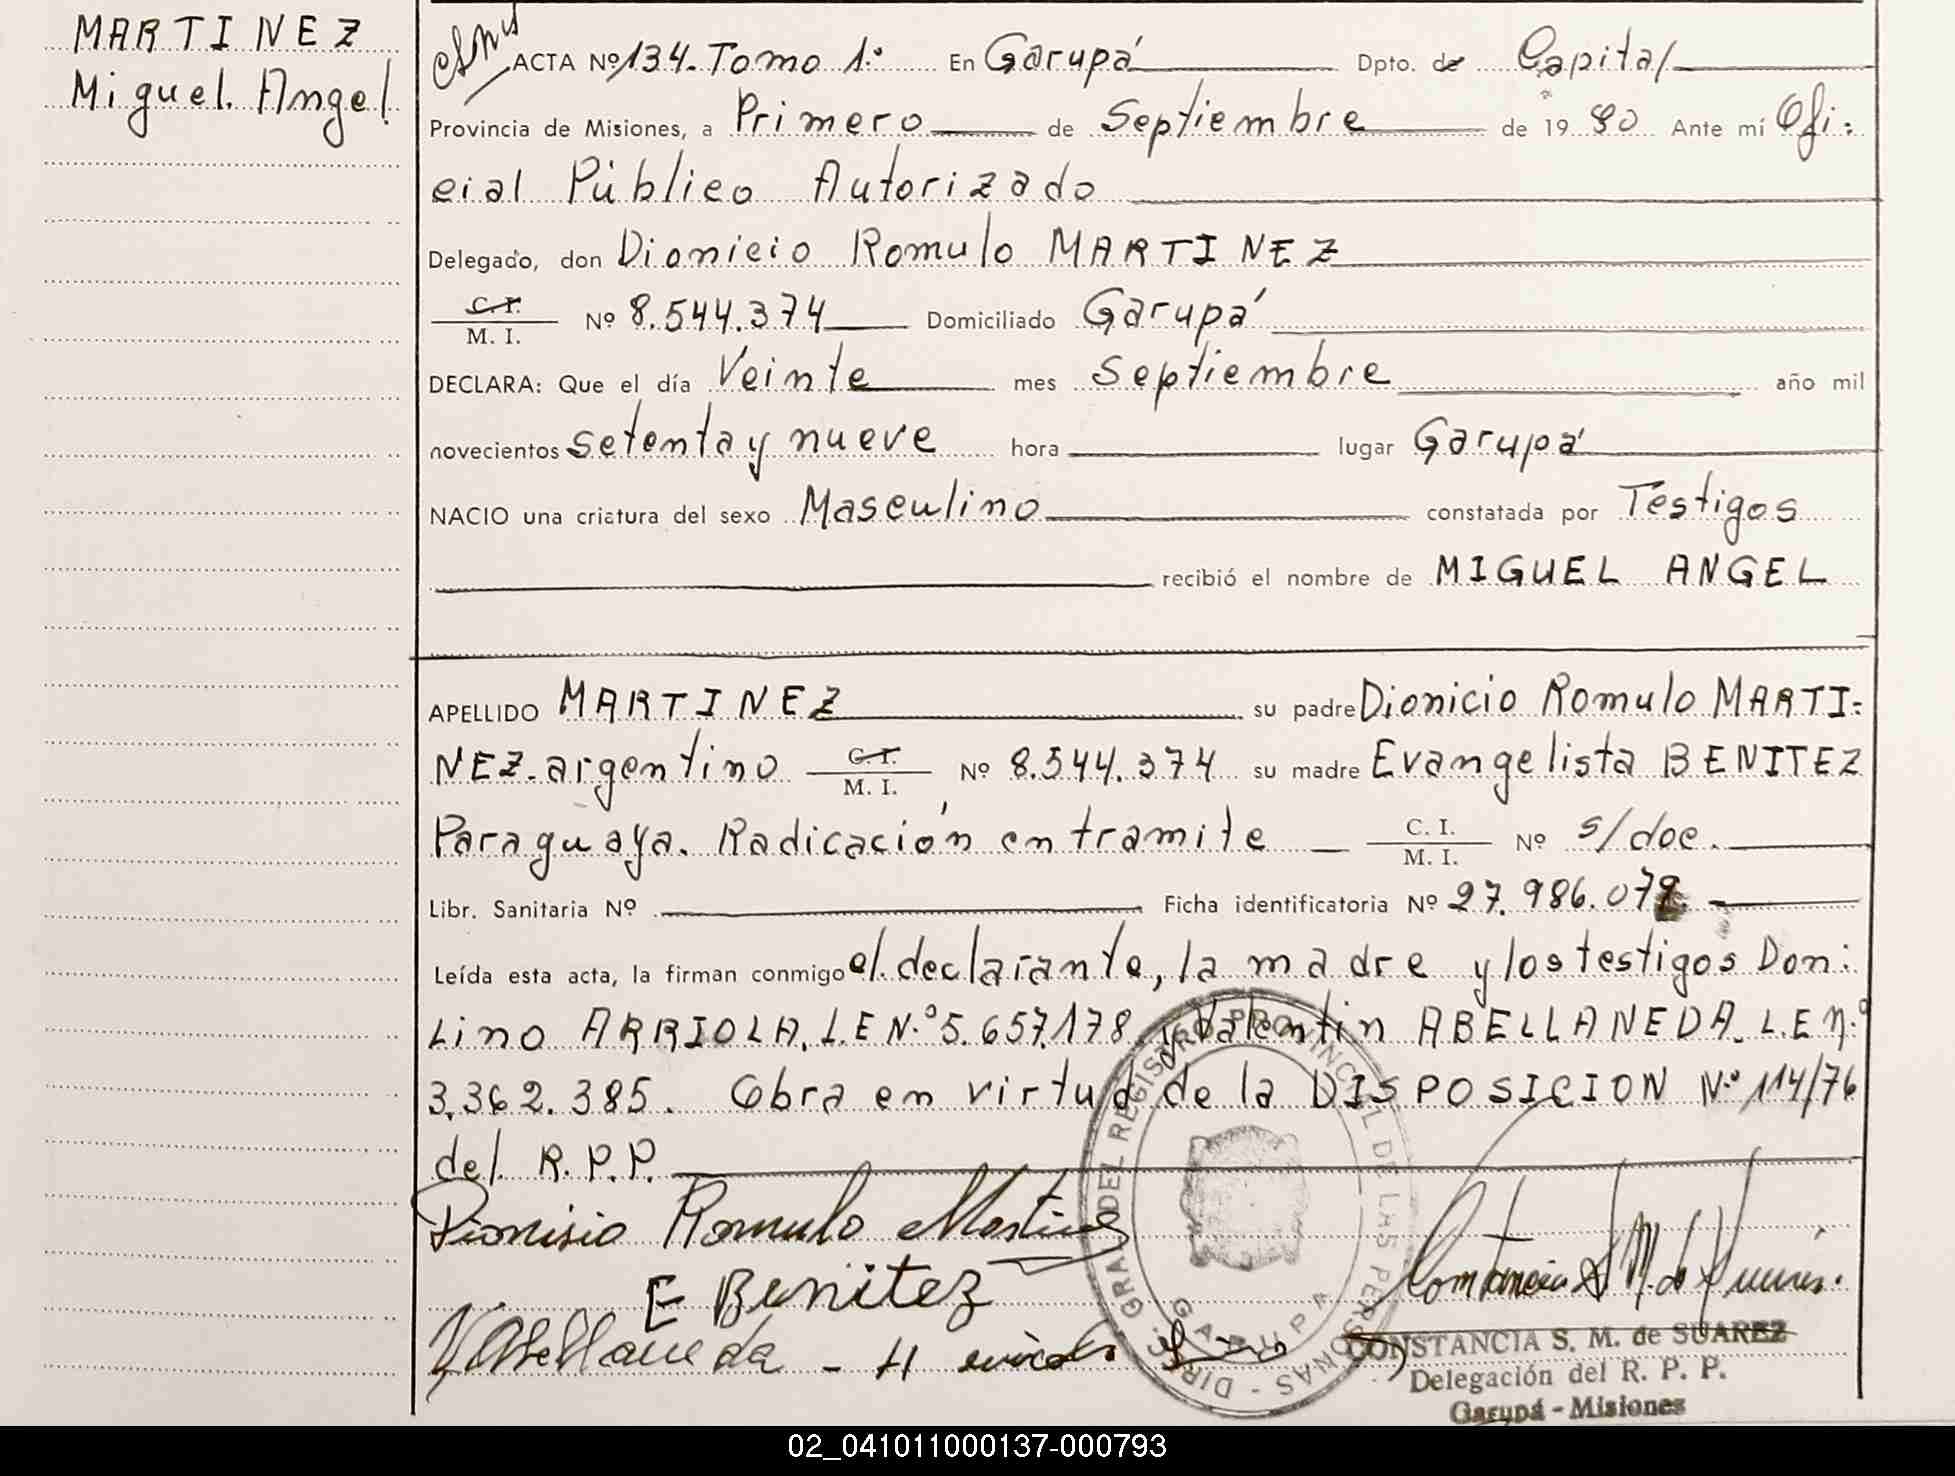 MARTINEZ
Miguel Angel
ACTA Nº 134. Tomo 1º En Garupá Dpto. de Capital
Provincia de Misiones, a Primero de Septiembre de 1980 Ante mí Ofi-
cial Público Autorizado
Delegado, don Dionicio Romulo MARTINEZ
C. I.
M. I. Nº 8.544.374 Domiciliado Garupá
DECLARA: Que el día Veinte mes Septiembre año mil
novecientos setenta y nueve hora lugar Garupá
NACIO una criatura del sexo Masculino constatada por Testigos
recibió el nombre de MIGUEL ANGEL
APELLIDO MARTINEZ su padre Dionicio Romulo MARTI-
NEZ. argentino C. I. M. I. Nº 8.544.374 su madre Evangelista BENITEZ
Paraguaya. Radicación en tramite C. I. M. I. Nº s/doc.
Libr. Sanitaria Nº Ficha identificatoria Nº 27.986.079.
Leída esta acta, la firman conmigo el declarante, la madre y los testigos Don:
Lino ARRIOLA. L.E Nº 5.657.178 y Valentin ABELLANEDA. L.E nº
3.362.385. Obra en virtud de la DISPOSICION Nº 114/76
del R.P.P.
Dionisio Romulo Martinez
E Benitez
V Abellaneda
DIREC. GRAL. DEL REGISTRO PROVINCIAL DE LAS PERSONAS
GARUPA
CONSTANCIA S. M. de SUAREZ
Delegación del R. P. P.
Garupá - Misiones
02_041011000137-000793